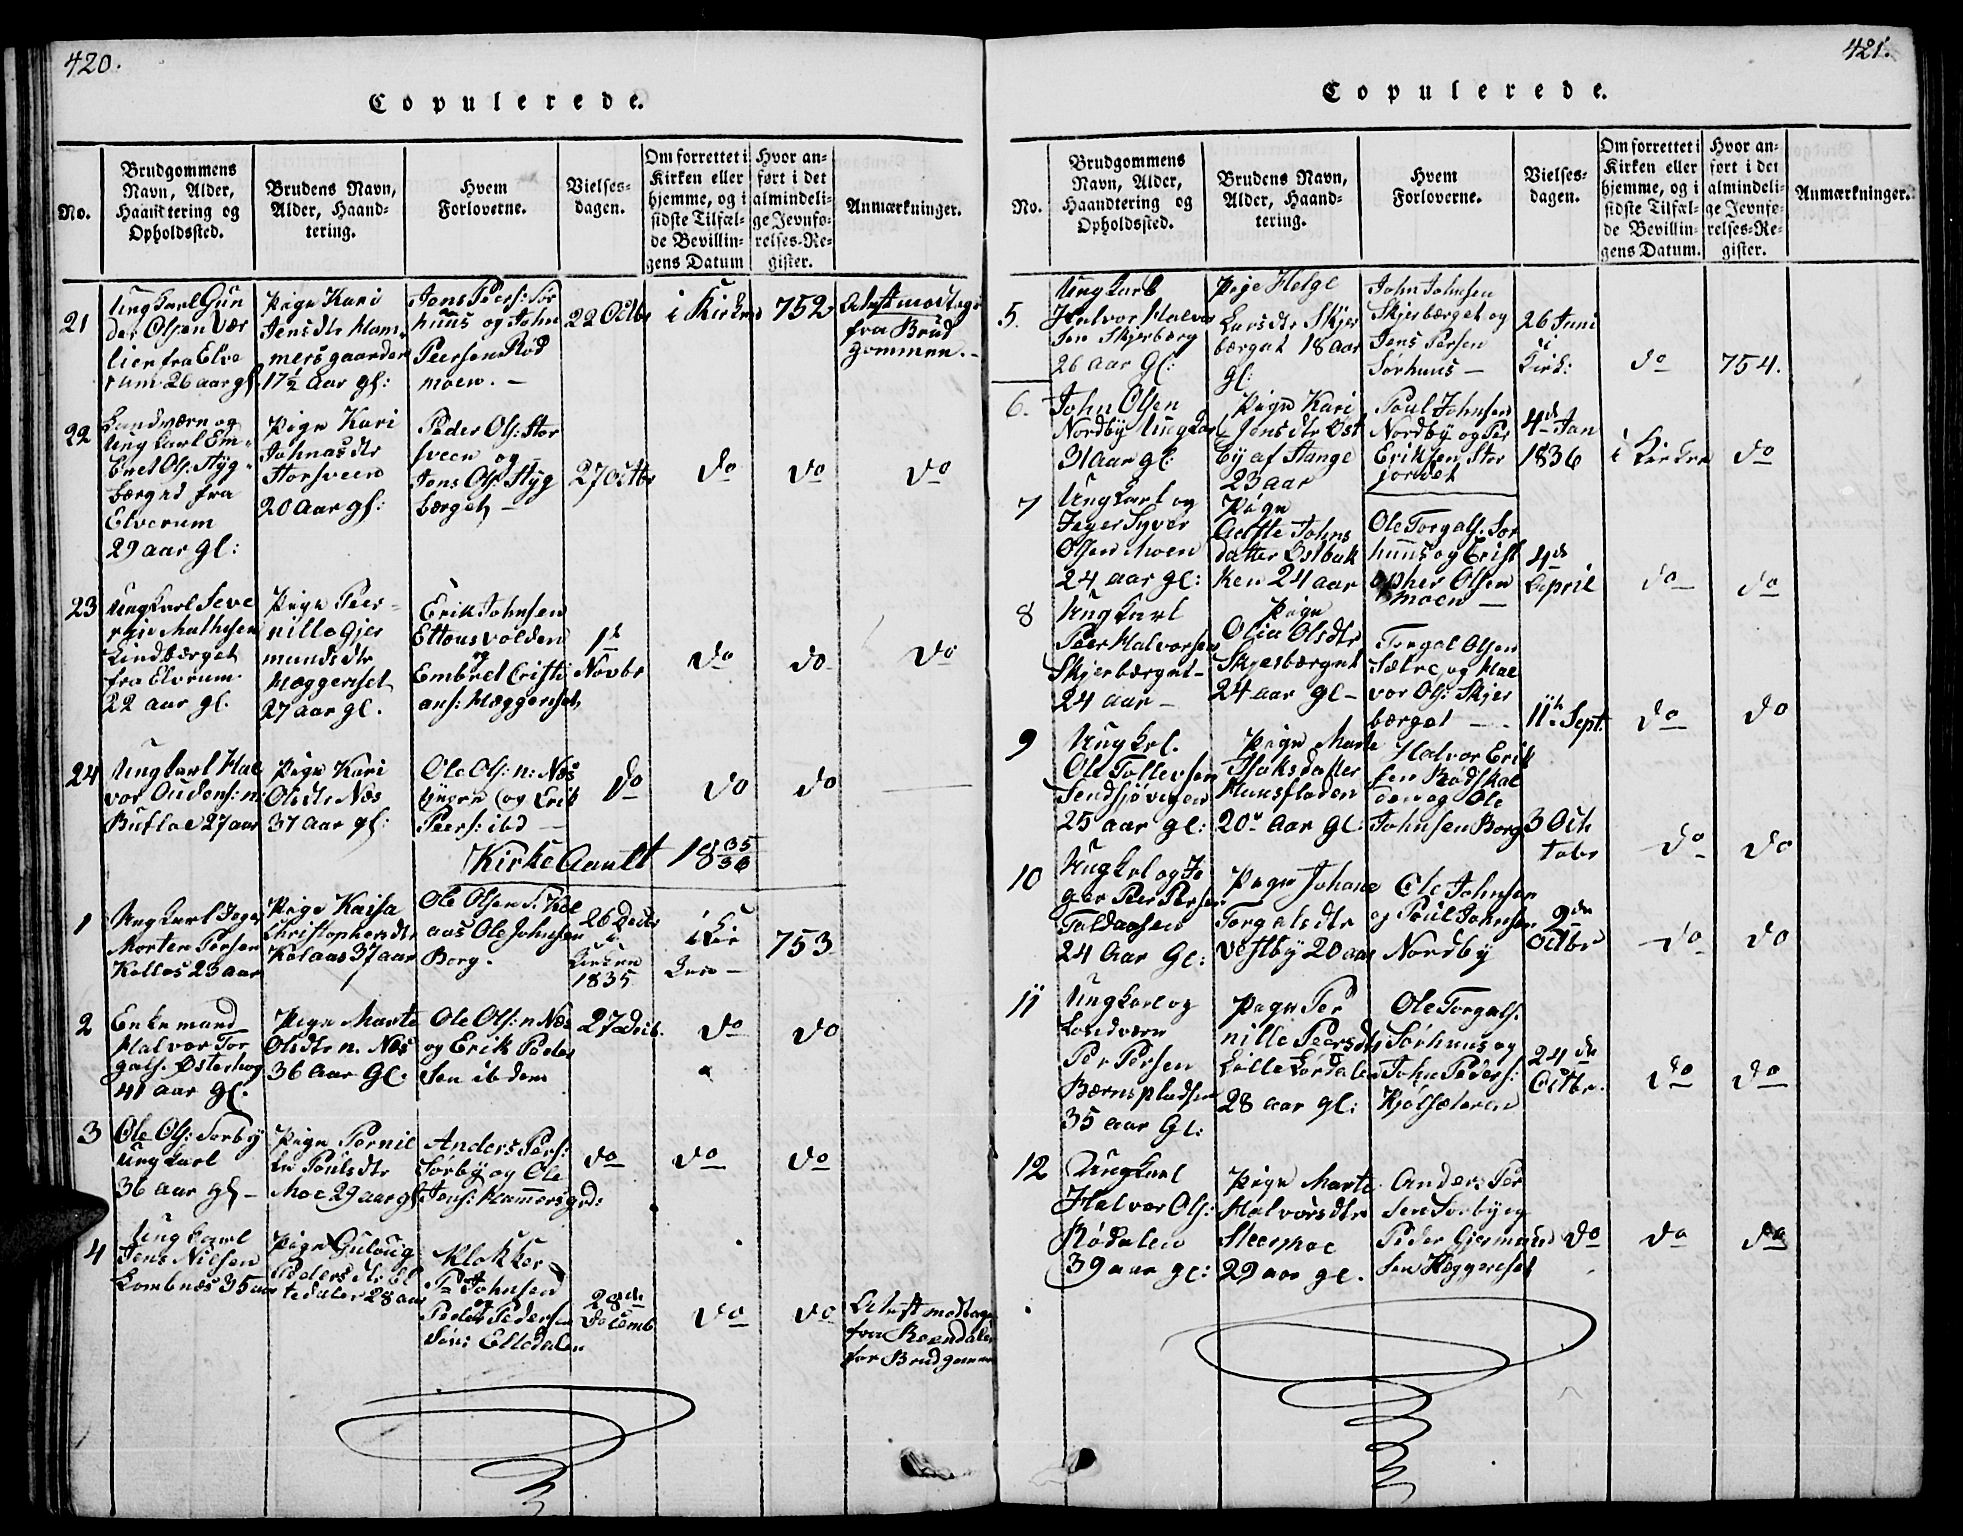 420.
Copulerede.
No.
Brudgommens
Navn, Alder,
Haandtering og
Opholdssted.
Brudens Navn,
Alder, Haand-
tering.
Hvem
Forloverne.
Vielses-
dagen.
Om forrettet i
Kirken eller
hjemme, og i
sidste Tilfæl-
de Bevillin-
gens Datum
Hvor an-
ført i det
almindeli-
ge Jevnfø-
relses-Re-
gister.
Anmærkninger.
21
Ungkarl Gun
der Olsen Vær
lien fra Elve
rum 26 aar gl.
Pige Kari
Jensdtr Ham
mersgaarden
17½ Aar gl:
Jens Peers: Sør
huus og John
Peersen Rød
moen. –
22 Octbr
i Kirken
752
Attest modtage
fra Brud
gommen. –
22
Landværn og
Ungkarl Em-
bret Ols: Styg-
bærget fra
Elverum
29 aar gl:
Pige Kari
Johnasdtr
Storsveen
20 Aar gl:
Peder Ols: Stor
sveen og
Jens Ols: Styg
bærget –
27 Octbr
do
do
do
23
Ungkarl Seve
rin Mathisen
Lindbærget
fra Elverum.
22 aar gl.
Pige Peer-
nille Gjer
mundsdtr
Hæggeriset
27 aar gl.
Erik Johnsen
Ettousvolden
og
Embret Cristi
ans: Hæggeriset
1de
Novbr
do
do
do
24
Ungkarl Hal
vor Oudens: n:
Bufloe 27 aar
Pige Kari
Olsdtr Næs
37 aar gl:
Ole Ols: n: Næs
og Erik
Peers: ibd –
do
do
do
Kirke Aaret 1835/36
1
Ungkarl Jeger
Morten Persen
Kollos 23 aar
Pige Kaisa
Christophersdtr
Kolaas 37 aar
Ole Olsen S. Kol
aas Ole Johnsen
Borg.
26 Decbr
i
Kirken
1835
i Kir
ken –
753
2
Enkemand
Halvor Tor
gals. Østerhog
41 aar gl.
Pige Marte
Olsdtr n. Næs
36 Aar Gl.
Ole Ols: n Næs
og Erik Peder
sen ibdem
27 Decb.
do
do
3
Ole Ols: Sørby
Ungkarl
36 aar gl –
Pige Pernil
le Poulsdtr
Moe 29 aar gl.
Anders Pers:
Sørby og Ole
Jens: Hammersgrd:
do
do
do
4
Ungkarl
Jens Nielsen
Lombnæs 35 aar
Pige Guloug
Pedersdtr El
tedalen 28 aar
Klokker
P Johnsen
og
Peder Pedersen
Søri Eltedalen
28de
Decemb
do
do
Attest modtage
fra Reendalen
for Brudgommen
421.
Copulerede.
No.
Brudgommens
Navn, Alder,
Haandtering og
Opholdssted.
Brudens Navn,
Alder, Haand-
tering.
Hvem
Forloverne.
Vielses-
dagen.
Om forrettet i
Kirken eller
hjemme, og i
sidste Tilfæl-
de Bevillin-
gens Datum.
Hvor an-
ført i det
almindeli-
ge Jevnfø-
relses-Re-
gister.
Anmærkninger.
5.
Ungkarl
Halvor Halvor
sen Skjerberg
26 aar Gl:
Pige Helge
Larsdtr Skjer
bærget 18 aar
gl:
John Johnsen
Skjerbærget og
Jens Persen
Sørhuus –
26 Juni
i
Kirk:
do
754.
6.
John Olsen
Nordby Ungkar
31 Aar gl:
Pige Kari
Jensdtr Øst
by af Stange
23 aar
Poul Johnsen
Nordby og Per
Eriksen Stor
jordet
4de Jan
1836
i Kirken
do
7
Ungkarl og
Jeger Syver
Olsen Moen
24 aar gl:
Pige
Johns
datter Østbak
ken 24 aar
Ole Torgals: Sør
huus og Crist
opher Olsen
Moen –
4de
April
do
do
8
Ungkarl
Peer Halvorsen
Skjerbærget –
24 aar –
Pige
Olia Olsdtr
Skjerbærget
24 aar gl –
Torgal Olsen
Sætre og Hal
vor Ols: Skjer
bærget –
11te Sept.
do
do
9
Ungkrl.
Ole Tollevsen
Sendsjøveien
25 aar gl:
Pige Marte
Isaksdatter
Huusfloden
20 Aar Gl:
Halvor Erik
sen Rødskal
len og Ole
Johnsen Borg
3 Oct
tobr
do
do
10
Ungkrl og Je
ger Peer Persen
Foldaasen
24 Aar Gl:
Pige Johane
Torgalsdtr
Vestby 20 aar
Ole Johnsen
og Poul Johnsen
Nordby
2den
Octbr
do
do
11
Ungkarl og
Landværn
Per Persen
Bærnspladsen
35 aar Gl:
Pige Per
nille Peersdtr
Lille Lørdalen
28 aar gl:
Ole Torgals.
Sørhuus og
John Peders:
Kjølsæteren
24de
Octbr.
do
do
12
Ungkarl
Halvor Ols:
Rødalen
39 aar gl:
Pige Marte
Halvorsdtr
Steermoe
29 aar gl.
Anders Per
sen Sørby og
Peder Gjermund
sen Hæggeriset
do
do
do